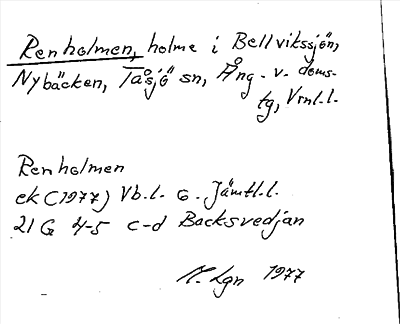 Renholmen, holme i Bellvikssjön,
Nybäcken, Tåsjö sn, Ång. v. doms-
tg, Vrnl.l.
Renholmen
ek (1977) Vb.l. o. Jämtl.l.
21 G 4-5 c-d Backsvedjan
Lgn 1977